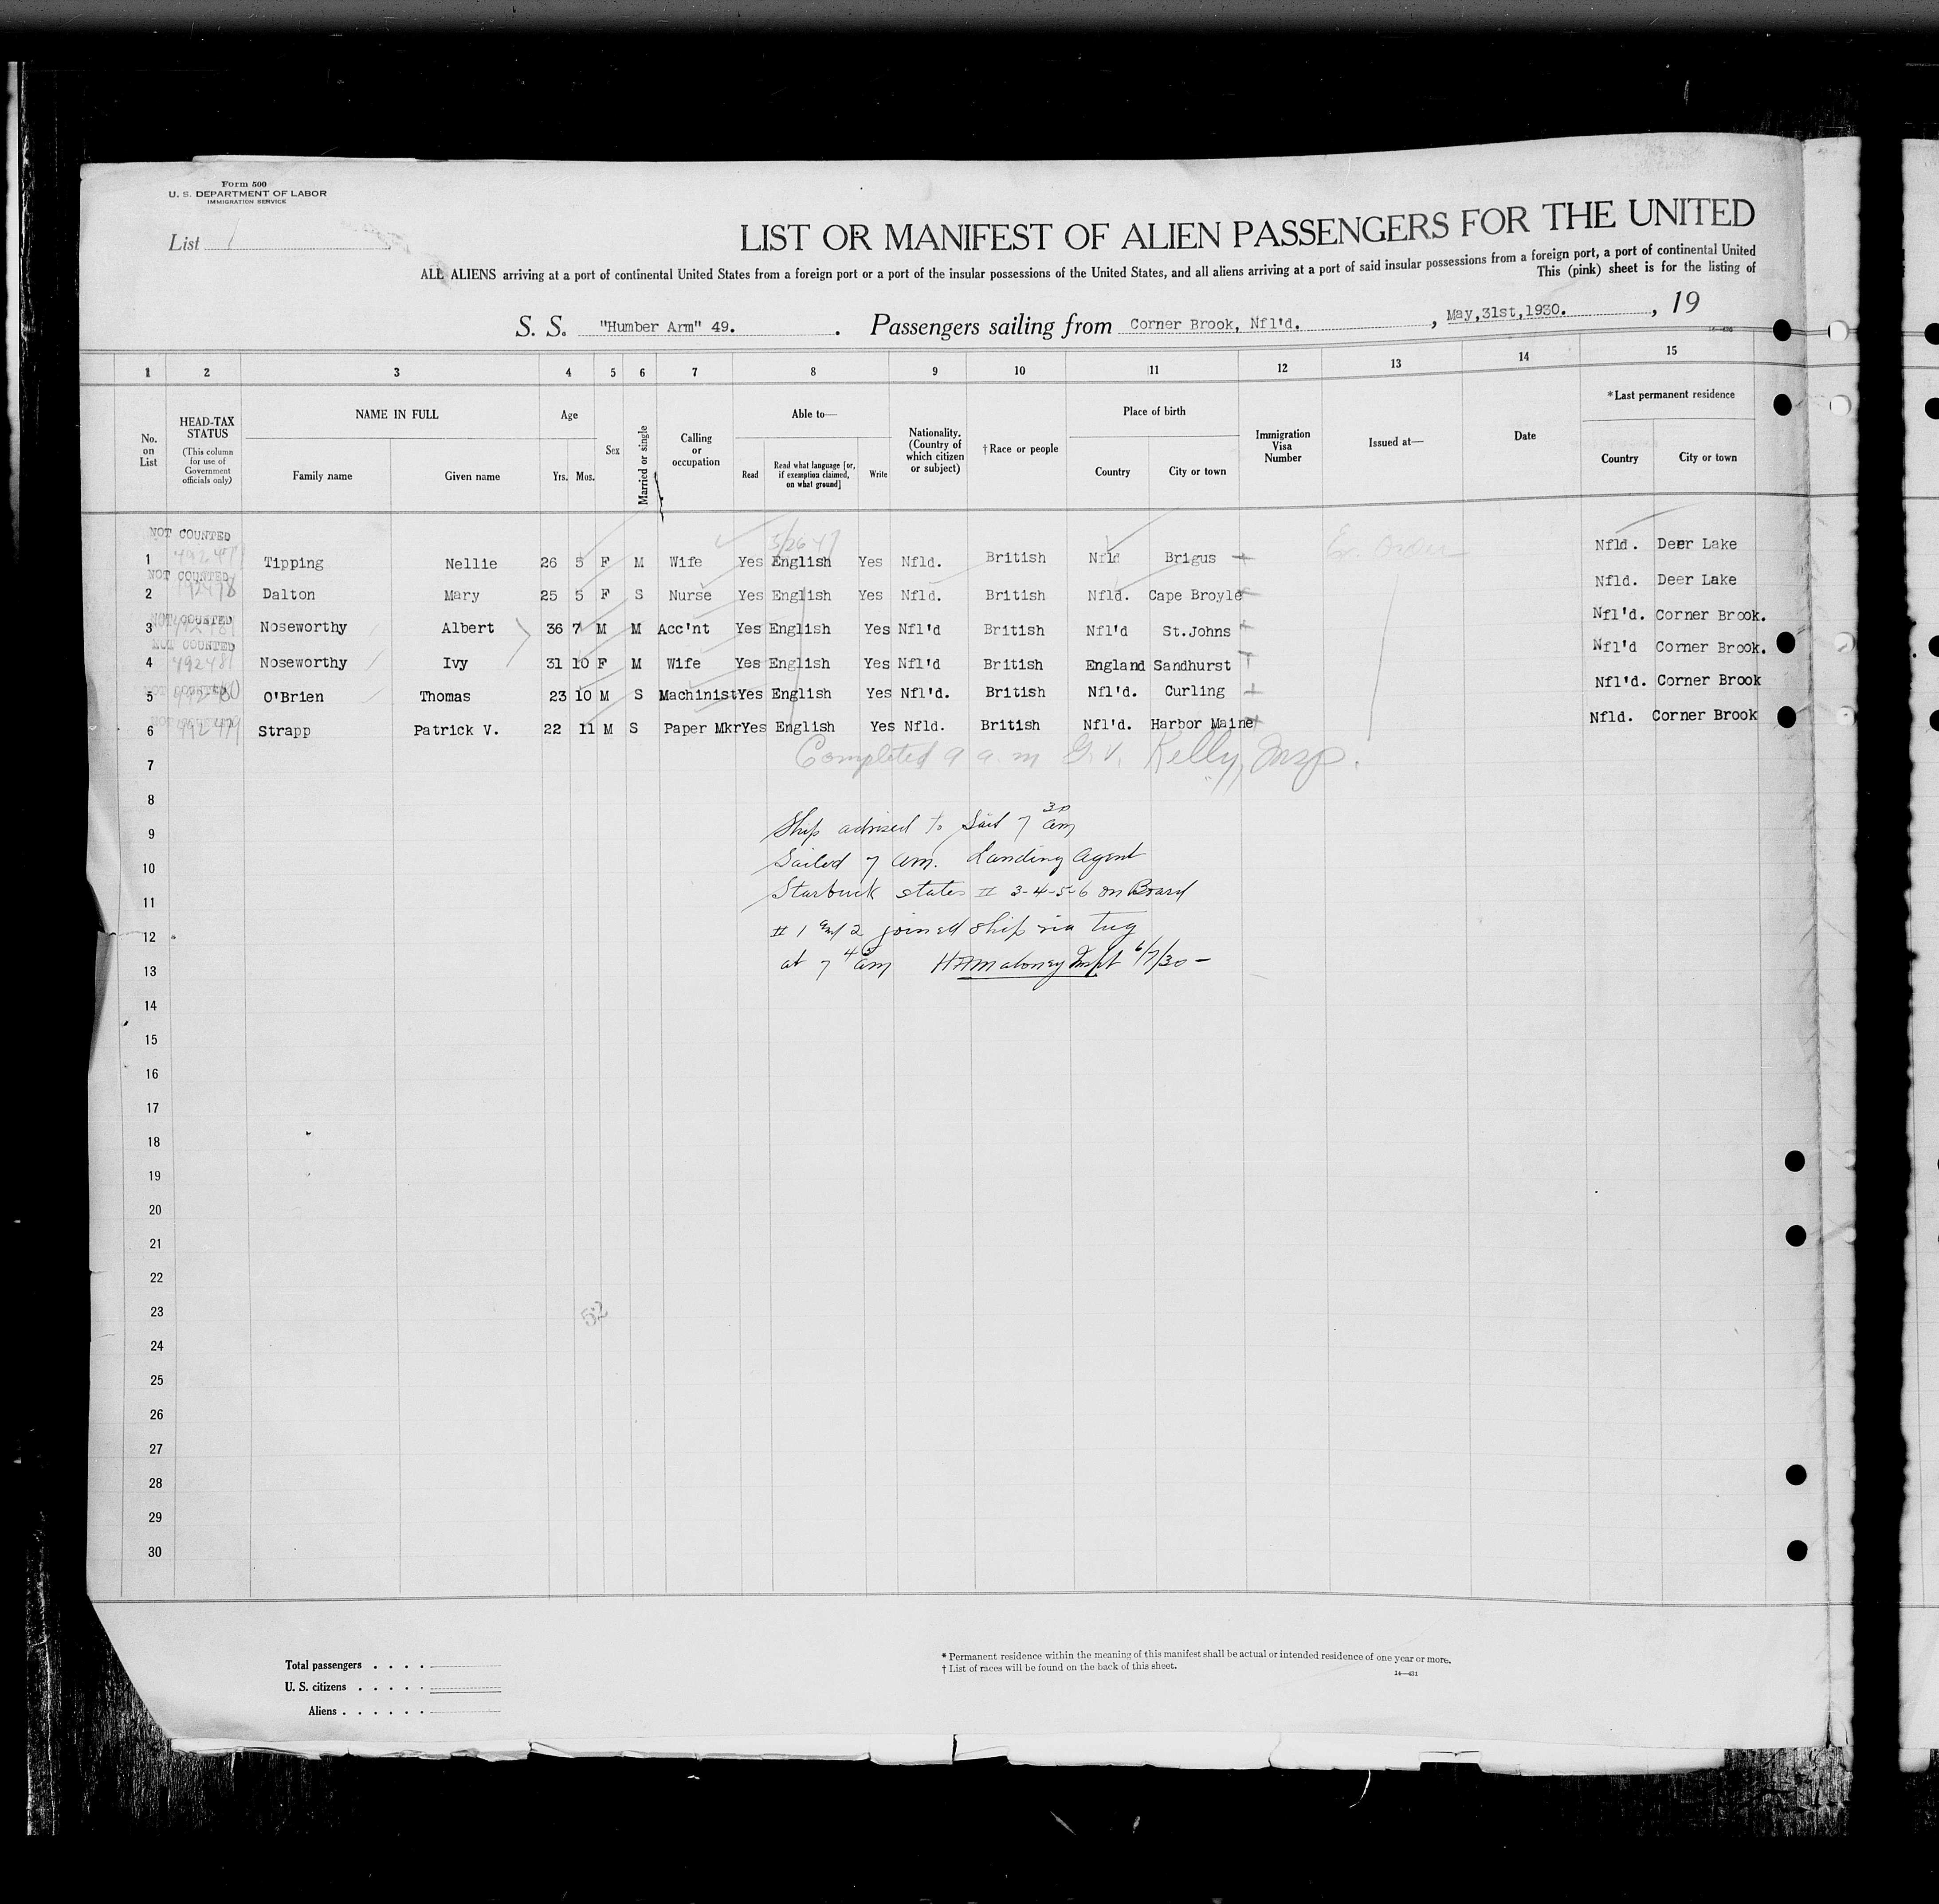 Form 500
U. S. DEPARTMENT OF LABOR
IMMIGRATION SERVICE
List 1
LIST OR MANIFEST OF ALIEN PASSENGERS FOR THE UNITED
ALL ALIENS arriving at a port of continental United States from a foreign port or a port of the insular possessions of the United States, and all aliens arriving at a port of said insular possessions from a foreign port, a port of continental United
This (pink) sheet is for the listing of
S. S. "Humber Arm" 49. Passengers sailing from Corner Brook, Nfl'd. , May,31st,1930. , 19
1 2 3 4 5 6 7 8 9 10 11 12 13 14 15
No. on List
HEAD-TAX STATUS (This column for use of Government officials only)
NAME IN FULL
Family name Given name
Age
Yrs. Mos.
Sex
Married or single
Calling or occupation
Able to—
Read Read what language [or, if exemption claimed, on what ground] Write
Nationality. (Country of which citizen or subject)
† Race or people
Place of birth
Country City or town
Immigration Visa Number
Issued at—
Date
* Last permanent residence
Country City or town
NOT COUNTED
1 Tipping Nellie 26 5 F M Wife Yes English Yes Nfld. British Nfld Brigus Nfld. Deer Lake
NOT COUNTED
2 492478 Dalton Mary 25 5 F S Nurse Yes English Yes Nfld. British Nfld. Cape Broyle Nfld. Deer Lake
NOT COUNTED
3 Noseworthy Albert 36 7 M M Acc'nt Yes English Yes Nfl'd British Nfl'd St.Johns Nfl'd. Corner Brook.
NOT COUNTED
4 492481 Noseworthy Ivy 31 10 F M Wife Yes English Yes Nfl'd British England Sandhurst Nfl'd Corner Brook.
5 O'Brien Thomas 23 10 M S Machinist Yes English Yes Nfl'd. British Nfl'd. Curling Nfl'd. Corner Brook
6 492479 Strapp Patrick V. 22 11 M S Paper Mkr Yes English Yes Nfld. British Nfl'd. Harbor Maine Nfld. Corner Brook
7 Completed 9 a.m G.V. Kelly, Insp.
8
9 Ship advised to Sail 7 30 am
10 Sailed 7 am. Landing Agent
11 Starbuck states # 3-4-5-6 on Board
12 # 1 and 2 joined ship via tug
13 at 7 45 am H A Maloney Inspt 6/7/30 —
14
15
16
17
18
19
20
21
22
23
52
24
25
26
27
28
29
30
Total passengers . . . .
U. S. citizens . . . . .
Aliens . . . . . .
* Permanent residence within the meaning of this manifest shall be actual or intended residence of one year or more.
† List of races will be found on the back of this sheet.
14—431